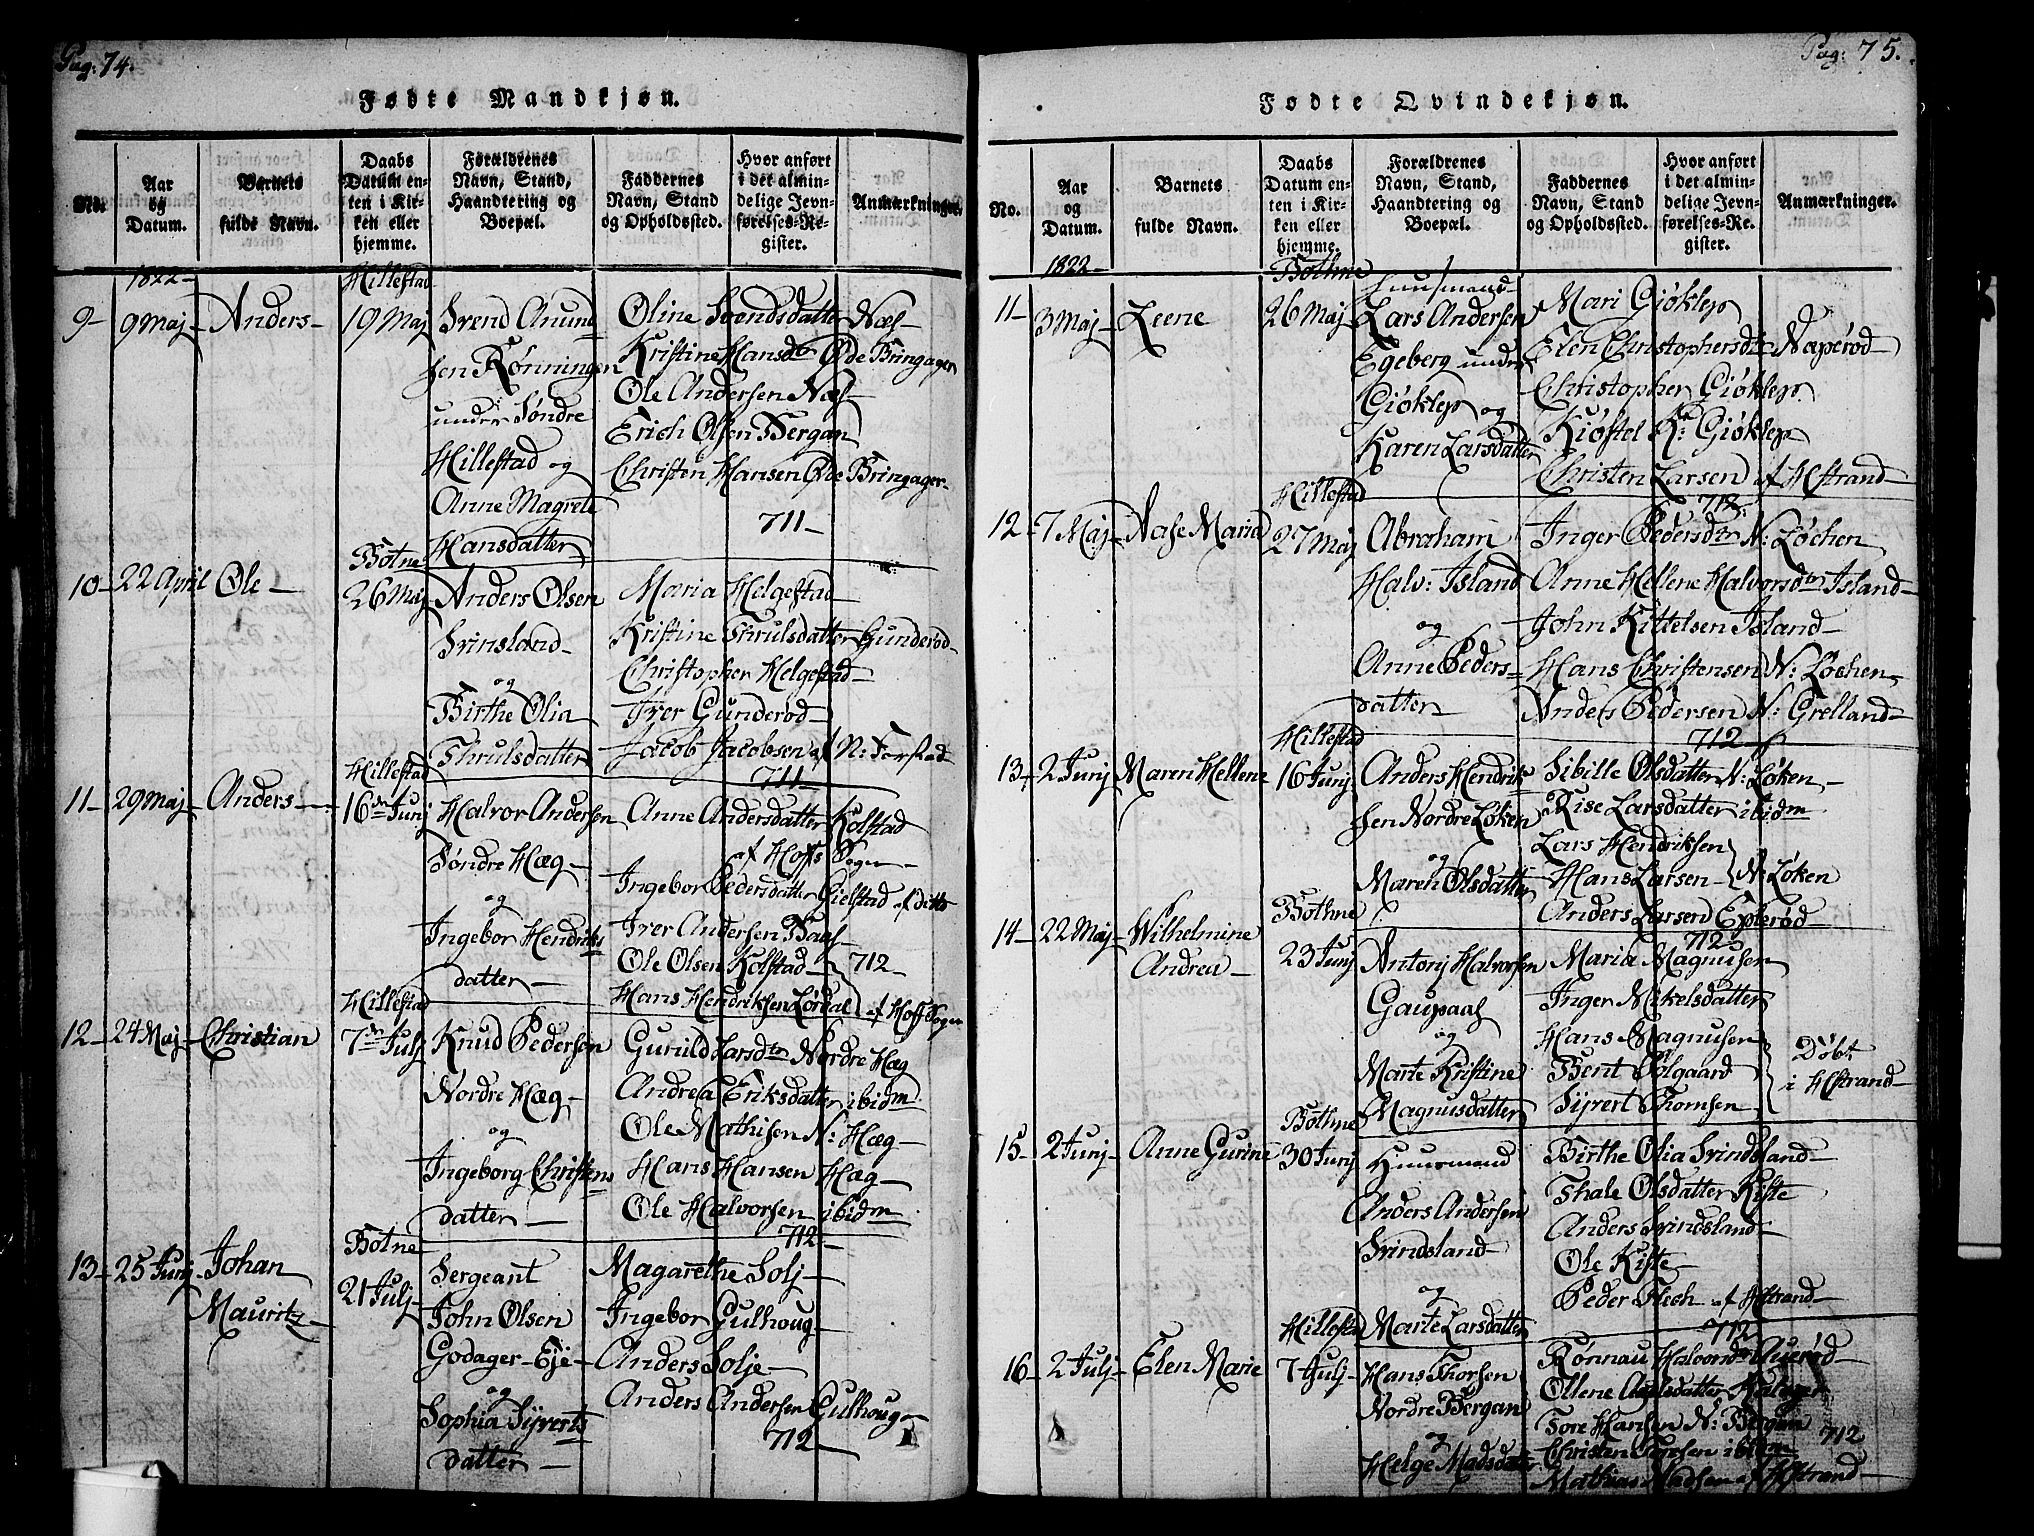 Pag: 74.
Fødte Mandkjøn.
No.
Aar
og
Datum.
Barnets
fulde Navn.
Daabs
Datum en-
ten i Kir-
ken eller
hjemme.
Forældrenes
Navn, Stand,
Haandtering og
Boepæl.
Faddernes
Navn, Stand
og Opholdssted.
Hvor anført
i det almin-
delige Jevn-
førelses-Re-
gister.
Anmærkninger.
1822-
Hillestad
9- 9 Maj- Anders- 19 Maj
Svend Anund
sen Rønningen
under Søndre
Hillestad og
Anne Magrete
Hansdatter
Oline Svendsdatter Næs-
Kristine Hansdtr Øde Bringager
Ole Andersen Næs-
Erich Olsen Bergan
Christen Hansen Øde Bringager-
711-
Botne
10- 22 April Ole- 26 Maj
Anders Olsen
Svinsland-
og
Birthe Olia
Thrulsdatter
Maria Helgestad-
Kristine Thrulsdatter Gunderød-
Christopher Helgestad-
Iver Gunderød-
Jacob Jacobsen af N: Forstad
711-
Hillestad
11- 29 Maj- Anders- 16de Junj
Halvor Andersen
Søndre Hæg-
og
Ingebor Hendriks
datter-
Anne Andersdatter Kolstad
af Hoffs Sogn-
Ingebor Pedersdatter Gielstad af ditto
Iver Andersen Baas-
Ole Olsen Kolstad-
Hans Hendriksen Lørdal af Hoff Sogn
712-
Hillestad
12- 24 Maj- Christian 7de Julj
Knud Pedersen
Nordre Hæg-
og
Ingeborg Christens
datter-
Guruld Larsdtr Nordre Hæg
Andrea Eriksdatter ibidm
Ole Mathisen N: Hæg-
Hans Hansen Hæg-
Ole Halvorsen ibidm
712-
Botne
13- 25 Junj- Johan
Mauritz- 21 Julj-
Sergeant
John Olsen
Godager-Eje-
og
Sophia Syverts
datter-
Magarethe Solj-
Ingebor Gulhoug-
Anders Solje-
Anders Andersen Gulhoug-
712-
Pag: 75.
Fødte Qvindekjøn.
No.
Aar
og
Datum.
Barnets
fulde Navn.
Daabs
Datum en-
ten i Kir-
ken eller
hjemme.
Forældrenes
Navn, Stand,
Haandtering og
Boepæl.
Faddernes
Navn, Stand
og Opholdssted.
Hvor anført
i det almin-
delige Jevn-
førelses-Re-
gister.
Anmærkninger.
1822-
Bothne
11- 3 Maj- Leene 26 Maj
Huusmand-
Lars Andersen
Egeberg under
Giøklep og
Karen Larsdatter
Mari Giøklep
Elen Christophersdtr Næperød-
Christopher Giøklep
Kiøstel K: Giøklep
Christen Larsen af Hstrand-
712.
Hillestad
12- 7 Maj- Aase Maria 27 Maj
Abraham
Halv: Island
og
Anne Peders-
datter
Inger Pedersdtr N: Løchen
Anne Hellene Halvorsdtr Island-
John Kittelsen Island-
Hans Christensen N: Løchen-
Anders Pedersen N: Grelland-
712-
Hillestad
13- 2 Junj- Maren Hellene 16 Junj
Anders Hendrik
sen Nordre Løken
og
Maren Olsdatter
Sibille Olsdatter N: Løken-
Kise Larsdatter ibidm
Lars Hendriksen
Hans Larsen- N: Løken
Anders Larsen Eplerød-
712
Bothne
14- 22 Maj- Wilhelmine
Andrea- 23 Junj
Antonj Halvorsen
Gaupaas
og
Marte Kristine
Magnusdatter
Maria Magnusen
Inger Mikelsdatter
Hans Magnusen
Bent Solgaard
Syvert Thomsen
Døbt
i Hstrand-
Bothne
15- 2 Junj- Anne Gurine 30 Junj
Huusmand
Anders Andersen
Svindsland-
og
Marte Larsdatter
Birthe Olia Svindsland-
Thale Olsdatter Kiste
Anders Svindsland-
Ole Kiste-
Peder Flech af Hstrand-
712
Hillestad
16- 2 Julj- Elen Marie 7 Julj-
Hans Thorsen
Nordre Bergan
og
Helge Madsdatter
Rønnau Halvordtr Auerød-
Ollene Axelsdatter
Tore Hansen N: Bergan
Christen Toresen ibidm 712
Mathias Madsen af Hstrand-